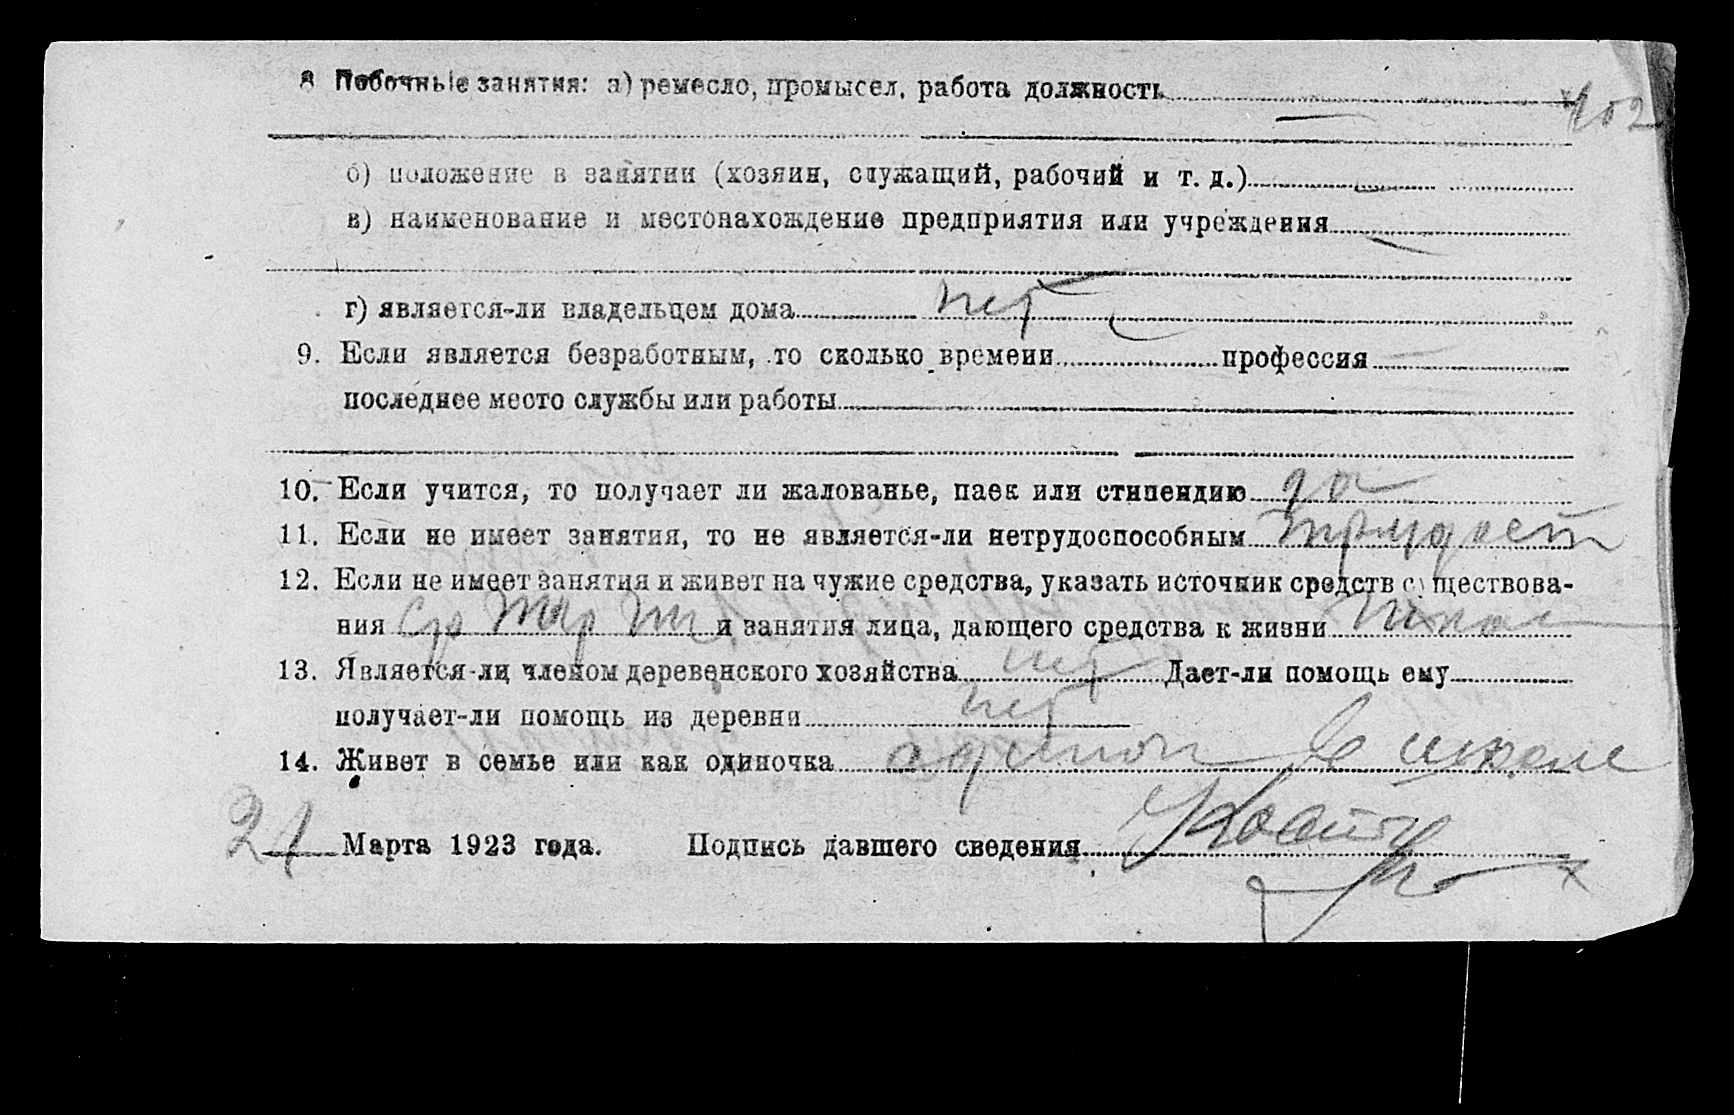 8 Побочные занятия: а) ремесло, промысел, работа должность
402
б) положение в занятии (хозяин, служащий, рабочий и т. д.)
в) наименование и местонахождение предприятия или учреждения
г) является-ли владельцем дома нет
9. Если является безработным, то сколько времени профессия
последнее место службы или работы
10. Если учится, то получает ли жалованье, паек или стипендию да
11. Если не имеет занятия, то не является-ли нетрудоспособным
12. Если не имеет занятия и живет на чужие средства, указать источник средств существова-
ния и занятия лица, дающего средства к жизни
13. Является-ли членом деревенского хозяйства нет Дает-ли помощь ему
получает-ли помощь из деревни нет
14. Живет в семье или как одиночка в школе
21 Марта 1923 года. Подпись давшего сведения